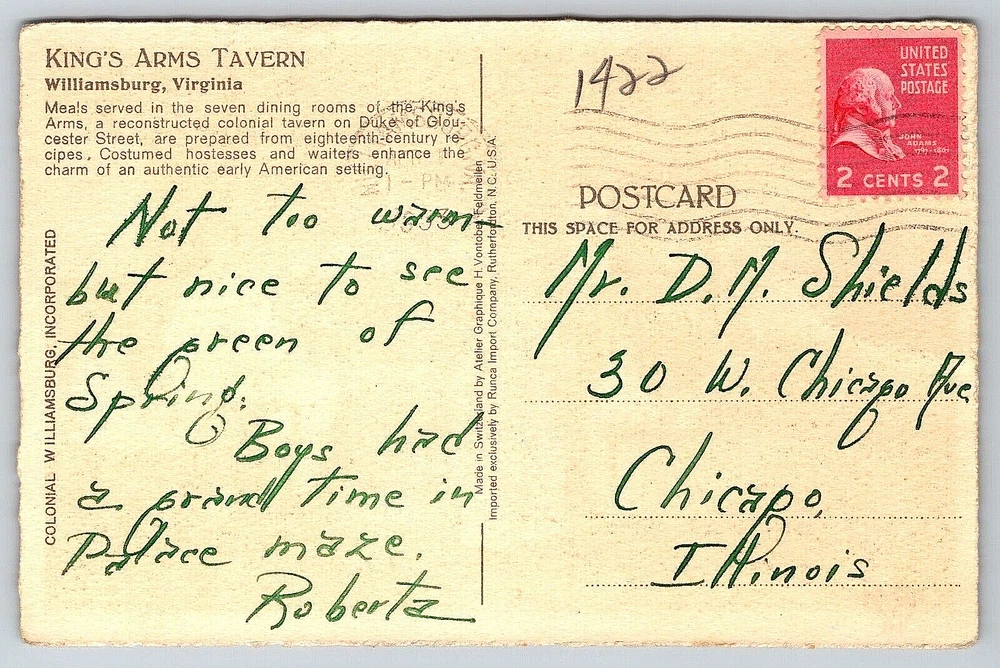 KING'S ARMS TAVERN
Williamsburg, Virginia
Meals served in the seven dining rooms of the King's
Arms, a reconstructed colonial tavern on Duke of Glou-
cester Street, are prepared from eighteenth-century re-
cipes. Costumed hostesses and waiters enhance the
charm of an authentic early American setting.
Not too warm-
but nice to see
the green of
Spring.
Boys had
a grand time in
Palace maze.
Roberta
COLONIAL WILLIAMSBURG, INCORPORATED
Made in Switzerland by Atelier Graphique H. Vontobel Feldmeilen
Imported exclusively by Runca Import Company, Rutherfordton, N.C. U.S.A.
1422
1 - PM
UNITED
STATES
POSTAGE
JOHN
ADAMS
1797-1801
2 CENTS 2
POSTCARD
THIS SPACE FOR ADDRESS ONLY.
Mr. D. M. Shields
30 W. Chicago Ave
Chicago,
Illinois